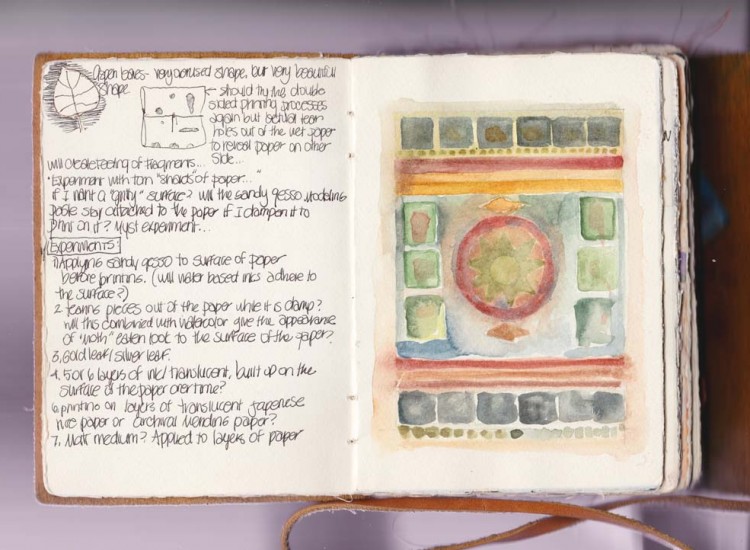 Aspen leaves - very overused shape, but very beautiful
shape
← should try the double
sided printing processes
again but actual tear
holes out of the wet paper
to reveal paper on other
side...
will create feeling of fragments...
"Experiment with torn "shards" of paper..."
if I want a "gritty" surface? will the sandy gesso modeling
paste stay attached to the paper if I dampen it to
print on it? Must experiment...
Experiments:
1. Applying sandy gesso to surface of paper
before printing. (will water based inks adhere to
the surface?)
2. tearing pieces out of the paper while it is damp?
will this combined with watercolor give the appearance
of "moth" eaten look to the surface of the paper?
3. Gold leaf/silver leaf.
4. 5 or 6 layers of ink/translucent, built up on the
surface of the paper over time?
6. printing on layers of translucent Japanese
rice paper or archival mending paper?
7. Matt medium? Applied to layers of paper